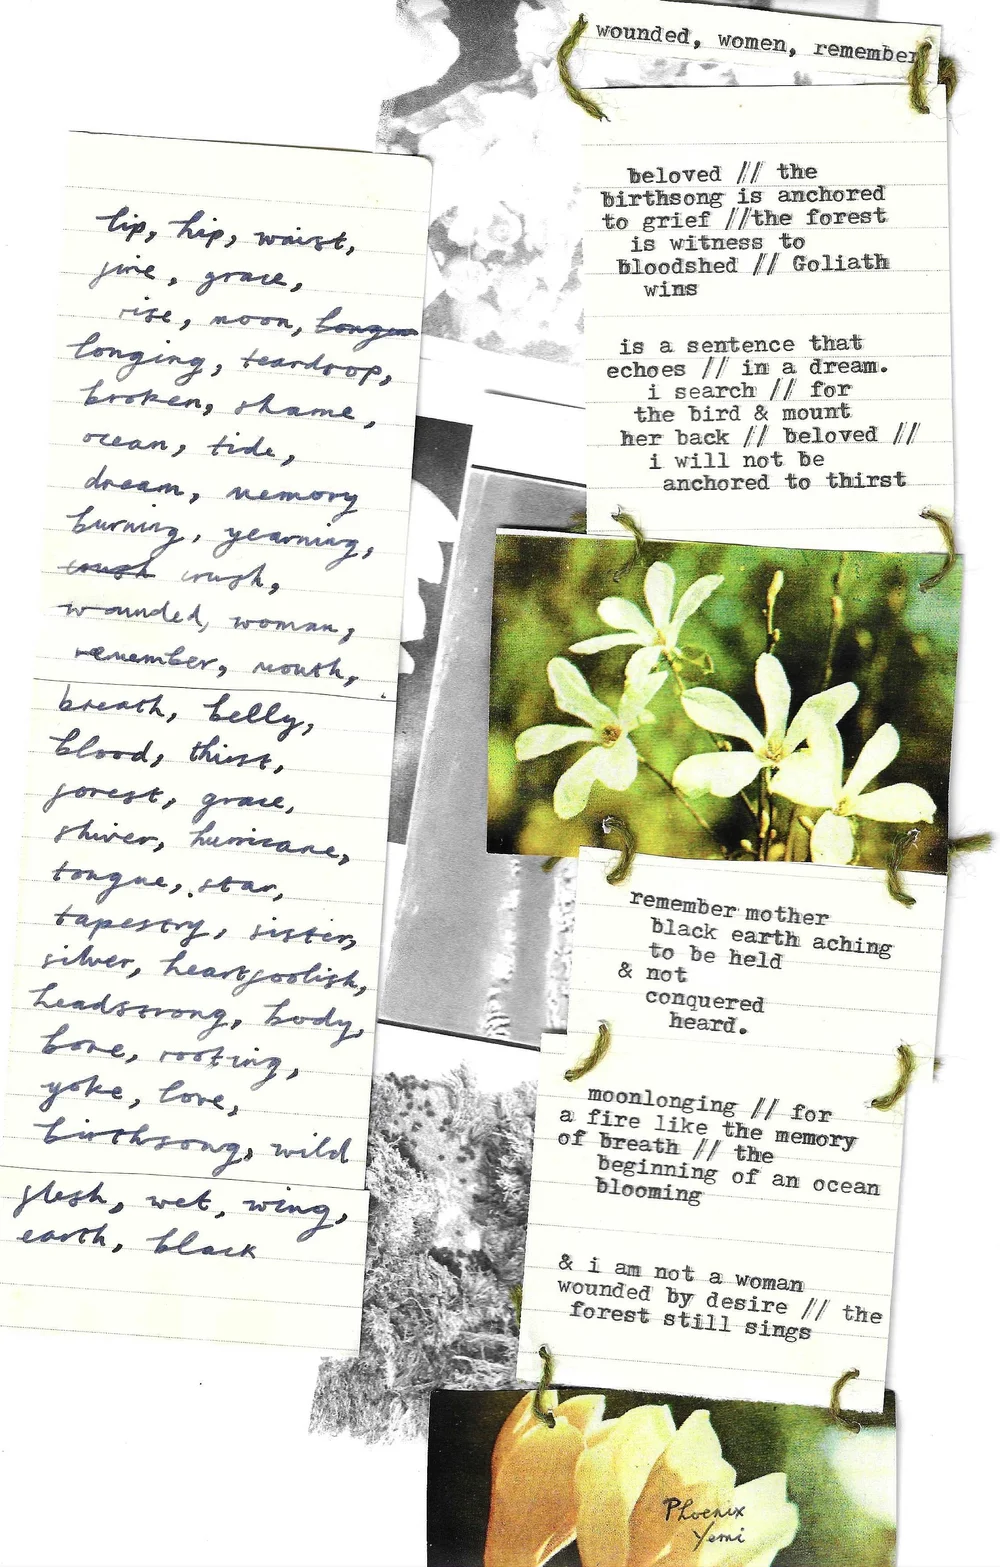 wounded, women, remember
lip, hip, waist,
fire, grace,
rise, moon,
longing, teardrop,
broken, shame,
ocean, tide,
dream, memory
burning, yearning,
crush,
wounded, woman,
remember, mouth,
breath, belly,
blood, thirst,
forest, grace,
shiver, hurricane,
tongue, star,
tapestry, sister,
silver, heartfoolish,
headstrong, body,
bone, rooting,
yoke, love,
birthsong, wild
flesh, wet, wing,
earth, black
beloved // the
birthsong is anchored
to grief //the forest
is witness to
bloodshed // Goliath
wins
is a sentence that
echoes // in a dream.
i search // for
the bird & mount
her back // beloved //
i will not be
anchored to thirst
remember mother
black earth aching
to be held
& not
conquered
heard.
moonlonging // for
a fire like the memory
of breath // the
beginning of an ocean
blooming
& i am not a woman
wounded by desire // the
forest still sings
Phoenix
Yemi